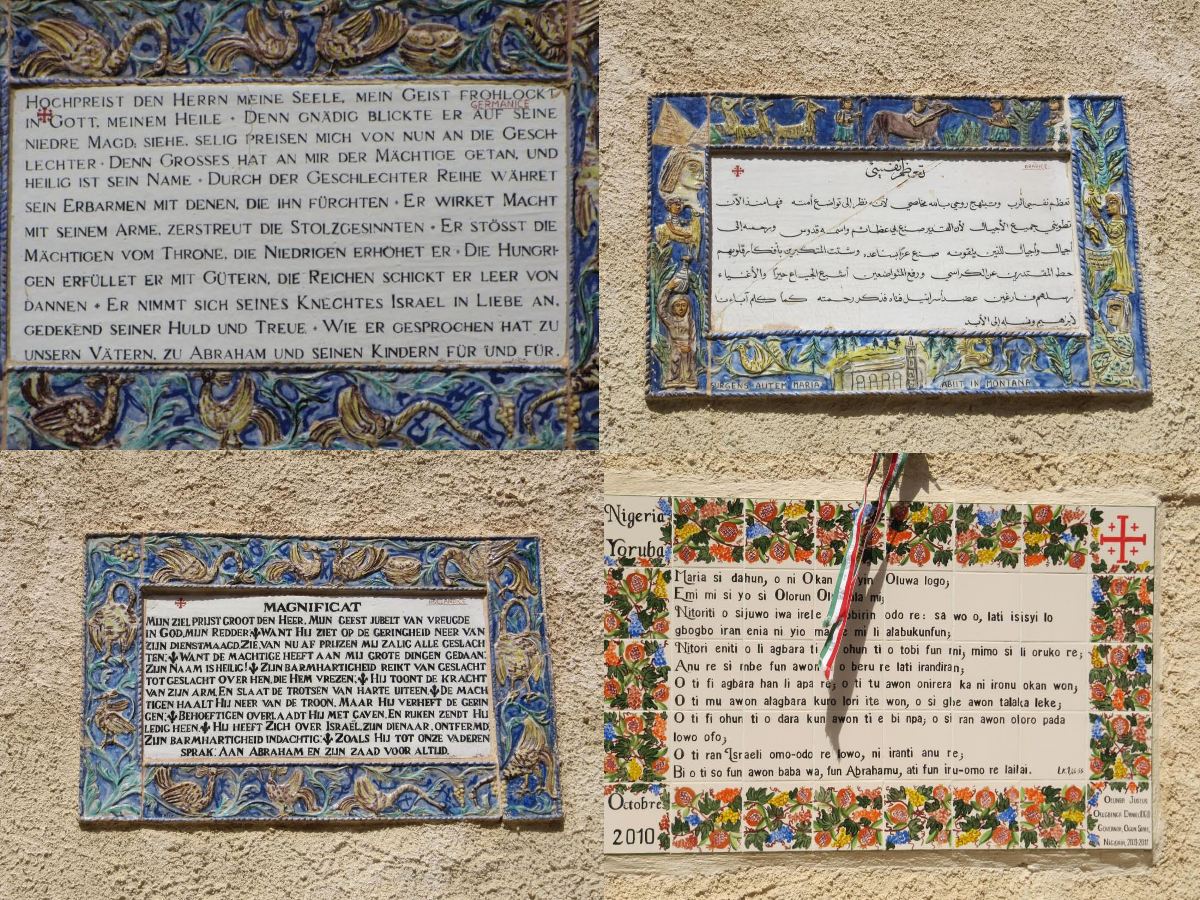 HOCHPREIST DEN HERRN MEINE SEELE, MEIN GEIST FROHLOCKT
GERMANICE
IN GOTT, MEINEM HEILE • DENN GNÄDIG BLICKTE ER AUF SEINE
NIEDRE MAGD; SIEHE, SELIG PREISEN MICH VON NUN AN DIE GESCH-
LECHTER • DENN GROSSES HAT AN MIR DER MÄCHTIGE GETAN, UND
HEILIG IST SEIN NAME • DURCH DER GESCHLECHTER REIHE WÄHRET
SEIN ERBARMEN MIT DENEN, DIE IHN FÜRCHTEN • ER WIRKET MACHT
MIT SEINEM ARME, ZERSTREUT DIE STOLZGESINNTEN • ER STÖSST DIE
MÄCHTIGEN VOM THRONE, DIE NIEDRIGEN ERHÖHET ER • DIE HUNGRI-
GEN ERFÜLLET ER MIT GÜTERN, DIE REICHEN SCHICKT ER LEER VON
DANNEN • ER NIMMT SICH SEINES KNECHTES ISRAEL IN LIEBE AN,
GEDEKEND SEINER HULD UND TREUE • WIE ER GESPROCHEN HAT ZU
UNSERN VÄTERN, ZU ABRAHAM UND SEINEN KINDERN FÜR UND FÜR.
تعظم نفسي الرب وتبتهج روحي بالله مخلصي لأنه نظر إلى تواضع أمته فها منذ الآن
تطوبني جميع الأجيال لأن القدير صنع بي عظائم واسمه قدوس ورحمته إلى
أجيال وأجيال للذين يتقونه صنع عزا بساعده وشتت المتكبرين بأفكار قلوبهم
حط المقتدرين عن الكراسي ورفع المتواضعين أشبع الجياع خيرا والأغنياء
أرسلهم فارغين عضد إسرائيل فتاه فذكر رحمته كما كلم آباءنا
لإبراهيم ونسله إلى الأبد
SURGENS AUTEM MARIA ABIIT IN MONTANA
MAGNIFICAT
MIJN ZIEL PRIJST GROOT DEN HEER, MIJN GEEST JUBELT VAN VREUGDE
IN GOD, MIJN REDDER: WANT HIJ ZIET OP DE GERINGHEID NEER VAN
ZIJN DIENSTMAAGD. ZIE, VAN NU AF PRIJZEN MIJ ZALIG ALLE GESLACH
TEN; WANT DE MACHTIGE HEEFT AAN MIJ GROTE DINGEN GEDAAN.
ZIJN NAAM IS HEILIG! ZIJN BARMHARTIGHEID REIKT VAN GESLACHT
TOT GESLACHT OVER HEN, DIE HEM VREZEN. HIJ TOONT DE KRACHT
VAN ZIJN ARM, EN SLAAT DE TROTSEN VAN HARTE UITEEN. DE MACH
TIGEN HAALT HIJ NEER VAN DE TROON, MAAR HIJ VERHEFT DE GERIN
GEN; BEHOEFTIGEN OVERLAADT HIJ MET GAVEN, EN RIJKEN ZENDT HIJ
LEDIG HEEN. HIJ HEEFT ZICH OVER ISRAËL, ZIJN DIENAAR, ONTFERMD,
ZIJN BARMHARTIGHEID INDACHTIG: ZOALS HIJ TOT ONZE VADEREN
SPRAK, AAN ABRAHAM EN ZIJN ZAAD VOOR ALTIJD.
Nigeria
Yoruba
Maria si dahun, o ni Okan yin Oluwa logo;
Emi mi si yo si Olorun mi;
Nitoriti o sijuwo iwa irele obirin odo re: sa wo o, lati isisyi lo
gbogbo iran enia ni yio mi li alabukunfun;
Nitori eniti o li agbara ti ohun ti o tobi fun mi, mimo si li oruko re;
Anu re si mbe fun awon o beru re lati irandiran;
O ti fi agbara han li apa re; o ti tu awon onirera ka ni ironu okan won;
O ti mu awon alagbara kuro lori ite won, o si gbe awon talaka leke;
O ti fi ohun ti o dara kun awon ti e bi npa; o si ran awon oloro pada
lowo ofo;
O ti ran Israeli omo-odo re lowo, ni iranti anu re;
Bi o ti so fun awon baba wa, fun Abrahamu, ati fun iru-omo re lailai.
Octobre
2010
OTUNBA JUSTUS
OLUGBENGA DANIEL
GOVERNOR, OGUN STATE,
NIGERIA, 2003-2011